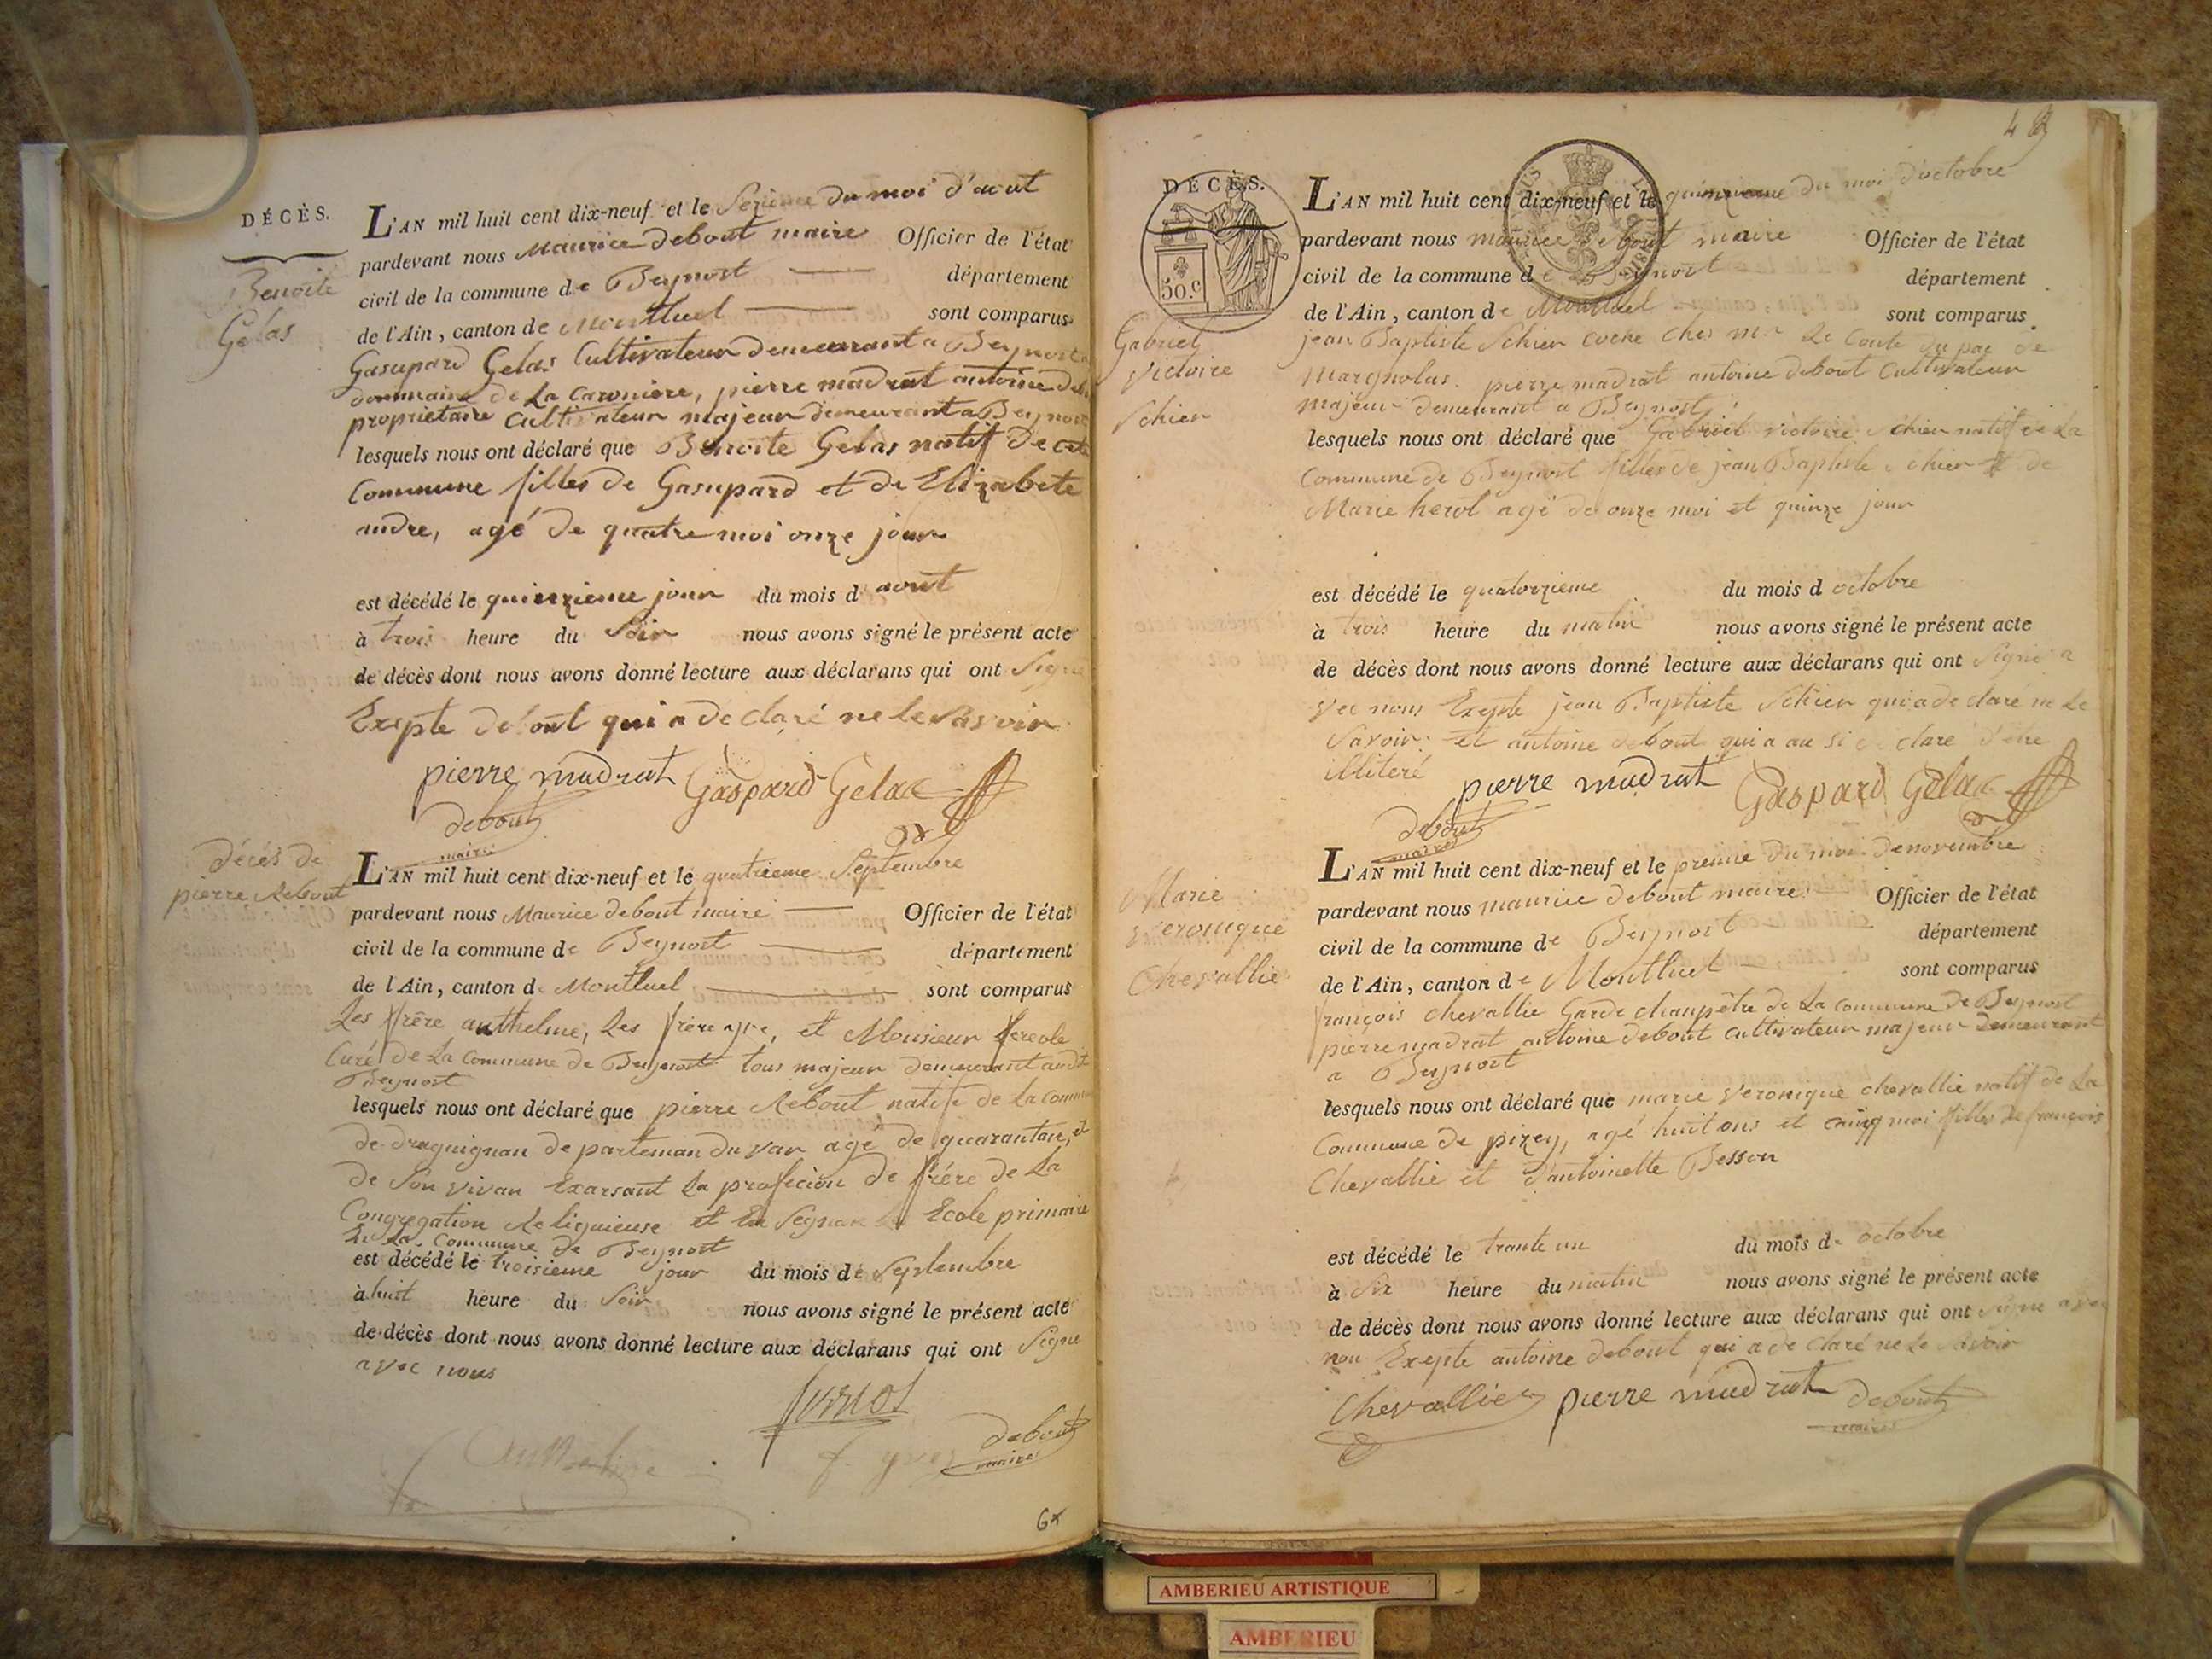 DÉCÈS.
Benoite
Gelas
L'AN mil huit cent dix-neuf et le Sezieme du moi d'aout
pardevant nous Maurice debout maire Officier de l'état
civil de la commune de Beynost département
de l'Ain, canton de Montluel sont comparus
Gasupard Gelas Cultivateur demeurant a Beynost
dommaine de La Caroniere, pierre madrat antoine
propriétaire Cultivateur majeur demeurant a Beynost
lesquels nous ont déclaré que Benoite Gelas natif de cete
Commune filles de Gasupard et de Elizabete
andre, agé de quatre moi onze jour
est décédé le quinzieme jour du mois d aout
à trois heure du Soir nous avons signé le présent acte
de décès dont nous avons donné lecture aux déclarans qui ont Signé
Exepte debout qui a declaré ne le Savoir
pierre madrat Gaspard Gelac
debout
maire
décés de
pierre Rebout
L'AN mil huit cent dix-neuf et le quatrieme Septembre
pardevant nous Maurice debout maire Officier de l'état
civil de la commune de Beynost département
de l'Ain, canton de Montluel sont comparus
Les frêre anthelme, Les frere yve, et Monsieur
Curé de La Commune de Beynost tous majeur demeurant audit
Beynost
lesquels nous ont déclaré que pierre Rebout natife de La Commune
de draguignan departeman du var agé de quarantans, et
de Son vivan Exarsant La profecion de frére de La
Congregation Religuieuse et En Segnan Ecole primaire
De La Commune de Beynost
est décédé le troisieme jour du mois de Septembre
à huit heure du Soir nous avons signé le présent acte
de décès dont nous avons donné lecture aux déclarans qui ont Signe
avec nous
debout
maire
f. yves
Anthelme
6
4
DÉCÈS.
50.c
Gabriel
Victoire
Schier
L'AN mil huit cent dix-neuf et le quinzieme du moi d'octobre
pardevant nous maurice debout maire Officier de l'état
civil de la commune de Beynost département
de l'Ain, canton de Montluel sont comparus
jean Baptiste Schier coche ches mr Le Conte du pac de
Margnolas. pierre madrat antoine debout Cultivateur
majeur demeurant a Beynost
lesquels nous ont déclaré que Gabriel victoire Schier natif de La
Commune de Beynost filles de jean Baptiste Schier et de
Marie herol agé de onze moi et quinze jour
est décédé le quatorzieme du mois d octobre
à trois heure du matin nous avons signé le présent acte
de décès dont nous avons donné lecture aux déclarans qui ont Signé a
vec nous Exepte jean Baptiste Schier qui a declare ne Le
Savoir et antoine debout qui a au si declaré d'etre
illiteré
pierre madrat Gaspard Gelac
debout
maire
Marie
Veronique
Chevallie
L'AN mil huit cent dix-neuf et le premie du moi denovembre
pardevant nous maurice debout maire Officier de l'état
civil de la commune de Beynost département
de l'Ain, canton de Montluel sont comparus
françois chevallie Garde champêtre de La Commune de Beynost
pierre madrat antoine debout cultivateur majeur demeurant
a Beynost
lesquels nous ont déclaré que marie Veronique chevallie natif de La
Commune de pizey, agé huit ans et cainq moi filles de françois
Chevallie et d'antoinette Besson
est décédé le trante un du mois de octobre
à Six heure du matin nous avons signé le présent acte
de décès dont nous avons donné lecture aux déclarans qui ont Signe avec
nou Exepte antoine debout qui a de claré ne Le Savoir
Chevallie pierre madrat debout
maire
AMBERIEU ARTISTIQUE
AMBERIEU